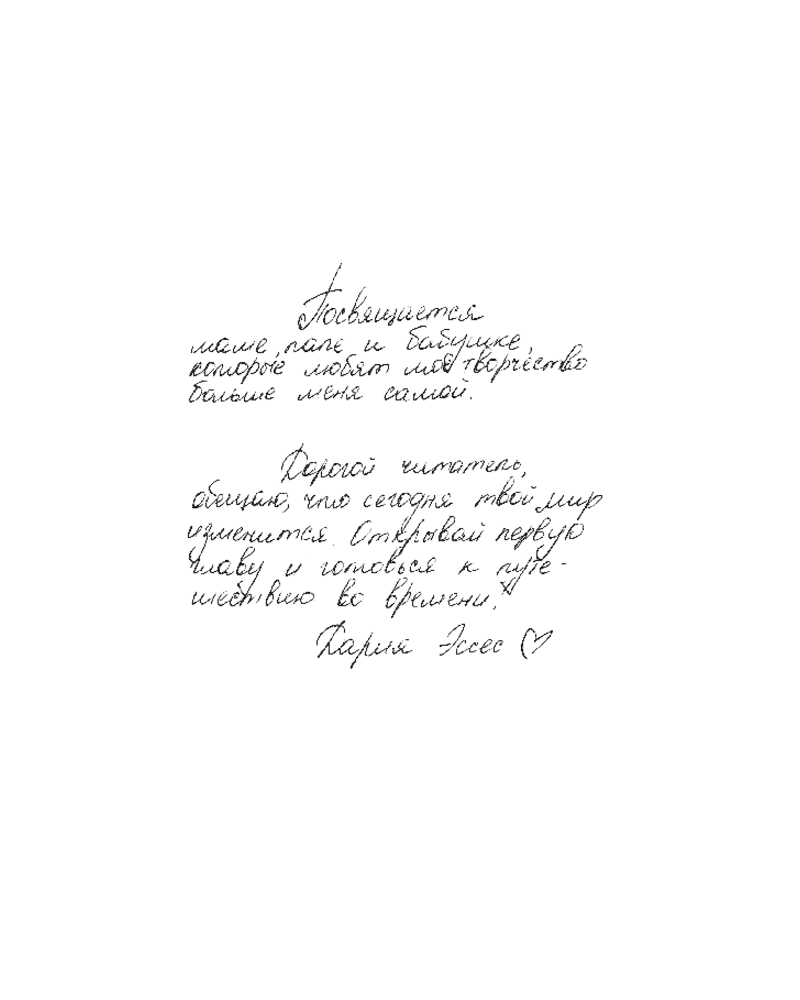 Посвящается
маме, папе и бабушке,
которые любят моё творчество
больше меня самой.
Дорогой читатель,
обещаю, что сегодня твой мир
изменится. Открывай первую
главу и готовься к путе-
шествию во времени.
Дария Эссес ♡